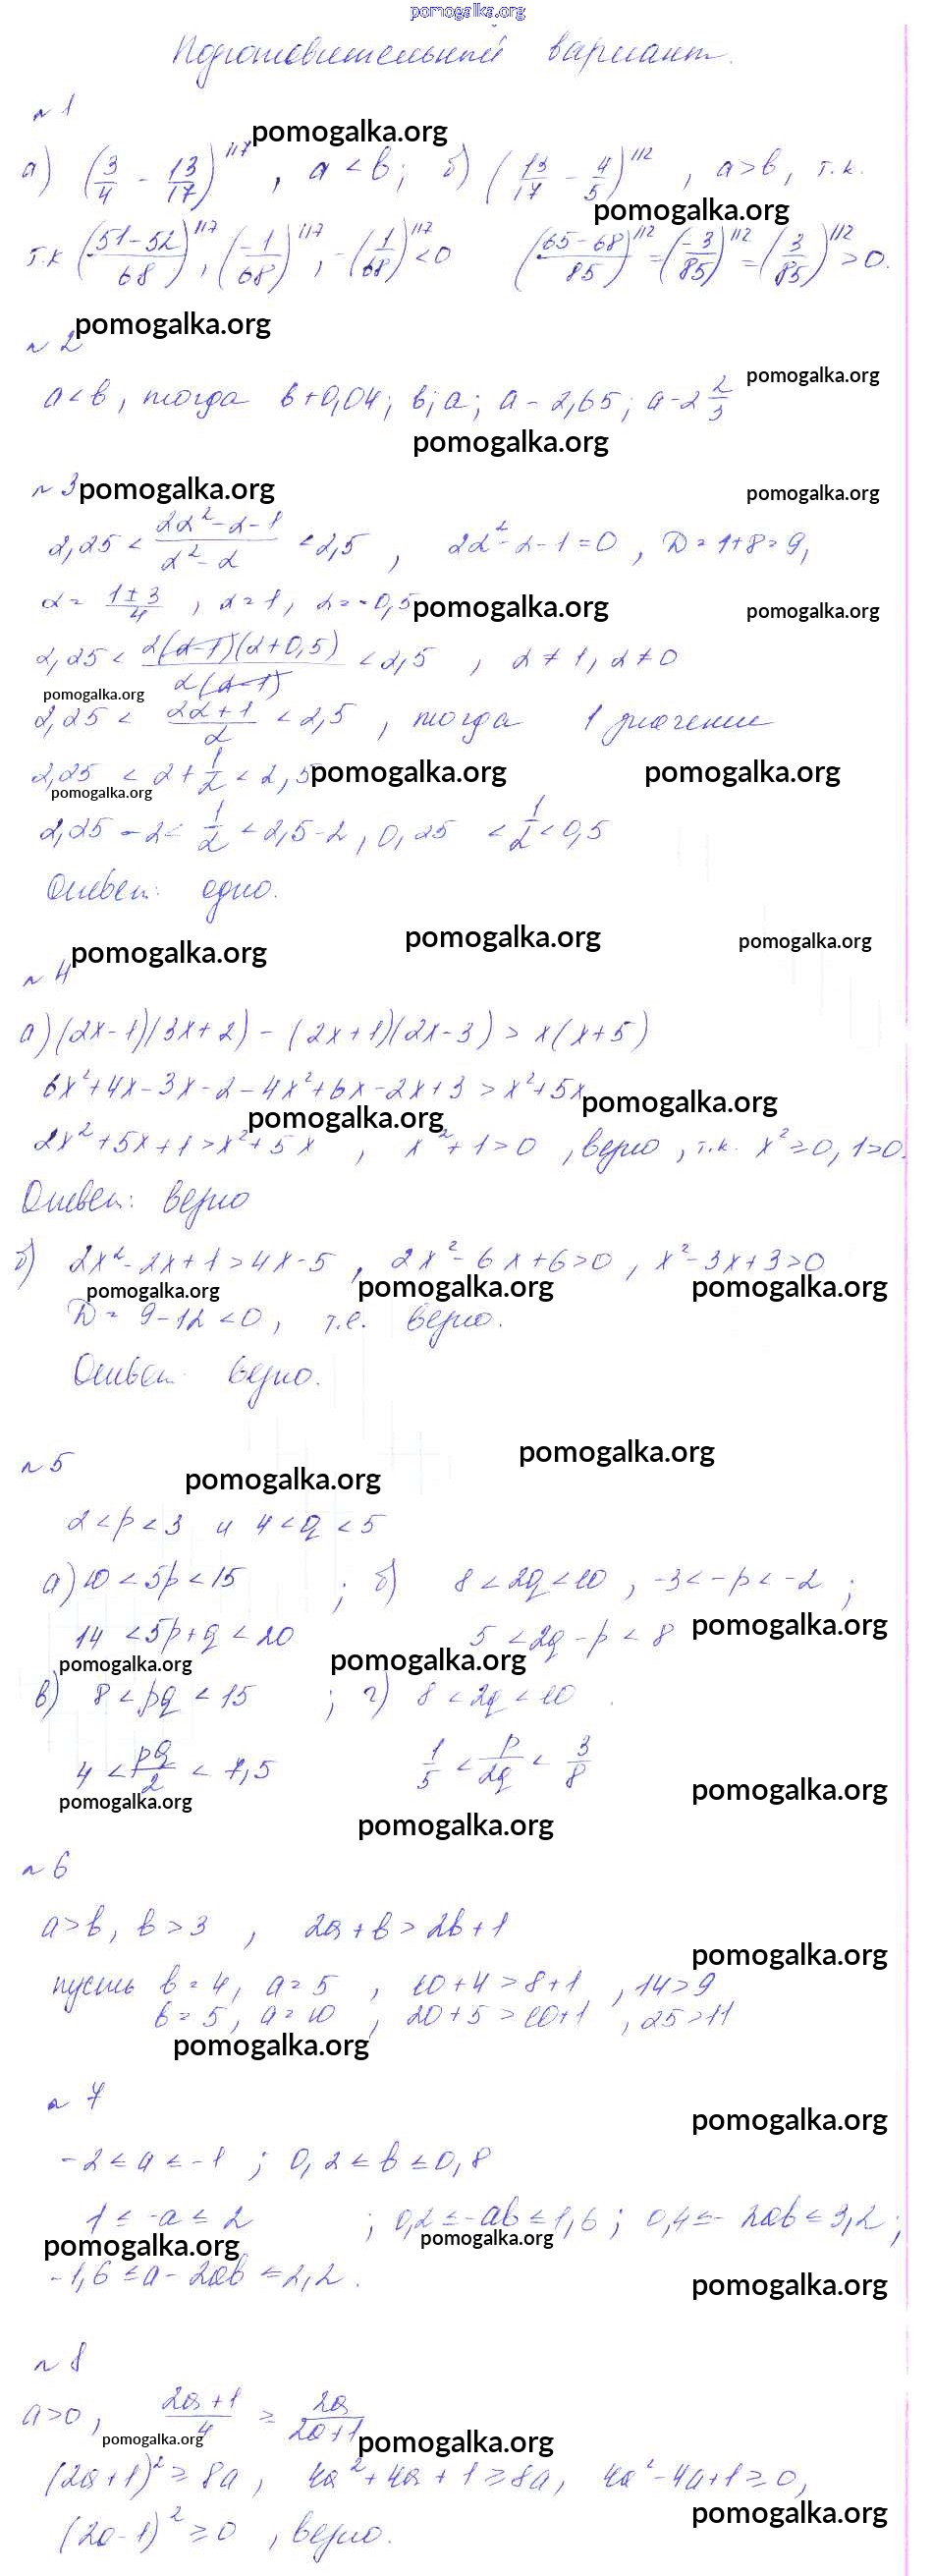 pomogalka.org
Подготовительный вариант.
№ 1
pomogalka.org
а) (3/4 - 13/17)^117, a < b; б) (13/17 - 4/5)^112, a > b, т.к.
pomogalka.org
т.к ((51-52)/68)^117, (-1/68)^117, -(1/68)^117 < 0 ((65-68)/85)^112 = (-3/85)^112 = (3/85)^112 > 0.
pomogalka.org
№ 2
pomogalka.org
a < b, тогда b+0,04; b; a; a - 2,65; a - 2 2/3
pomogalka.org
№ 3 pomogalka.org pomogalka.org
2,25 < (2α² - α - 1)/(α² - α) < 2,5, 2α² - α - 1 = 0, D = 1+8 = 9,
α = (1 ± 3)/4, α = 1, α = -0,5 pomogalka.org pomogalka.org
2,25 < 2(α-1)(α+0,5)/α(α-1) < 2,5, α ≠ 1, α ≠ 0
pomogalka.org
2,25 < (2α+1)/α < 2,5, тогда 1 значение
2,25 < 2 + 1/α < 2,5 pomogalka.org pomogalka.org
pomogalka.org
2,25 - 2 < 1/α < 2,5 - 2, 0,25 < 1/α < 0,5
Ответ: одно.
pomogalka.org pomogalka.org pomogalka.org
№ 4
а) (2x-1)(3x+2) - (2x+1)(2x-3) > x(x+5)
6x² + 4x - 3x - 2 - 4x² + 6x - 2x + 3 > x² + 5x pomogalka.org
pomogalka.org
2x² + 5x + 1 > x² + 5x, x² + 1 > 0, верно, т.к. x² ≥ 0, 1 > 0.
Ответ: верно
б) 2x² - 2x + 1 > 4x - 5, 2x² - 6x + 6 > 0, x² - 3x + 3 > 0
pomogalka.org pomogalka.org pomogalka.org
D = 9 - 12 < 0, т.е. верно.
Ответ: верно.
№ 5 pomogalka.org
pomogalka.org
2 < p < 3 и 4 < q < 5
а) 10 < 5p < 15; б) 8 < 2q < 10, -3 < -p < -2;
14 < 5p + q < 20 5 < 2q - p < 8 pomogalka.org
pomogalka.org pomogalka.org
в) 8 < pq < 15; г) 8 < 2q < 10.
4 < pq/2 < 7,5 1/5 < p/2q < 3/8 pomogalka.org
pomogalka.org
pomogalka.org
№ 6
a > b, b > 3, 2a + b > 2b + 1
pomogalka.org
пусть b = 4, a = 5, 10 + 4 > 8 + 1, 14 > 9
b = 5, a = 10, 20 + 5 > 10 + 1, 25 > 11
pomogalka.org
№ 7
pomogalka.org
-2 ≤ a ≤ -1; 0,2 ≤ b ≤ 0,8
1 ≤ -a ≤ 2; 0,2 ≤ -ab ≤ 1,6; 0,4 ≤ -2ab ≤ 3,2;
pomogalka.org pomogalka.org
-1,6 ≤ a - 2ab ≤ 2,2. pomogalka.org
№ 8
a > 0, (2a+1)/4 ≥ 2a/(2a+1)
pomogalka.org pomogalka.org
(2a+1)² ≥ 8a, 4a² + 4a + 1 ≥ 8a, 4a² - 4a + 1 ≥ 0,
pomogalka.org
(2a-1)² ≥ 0, верно.